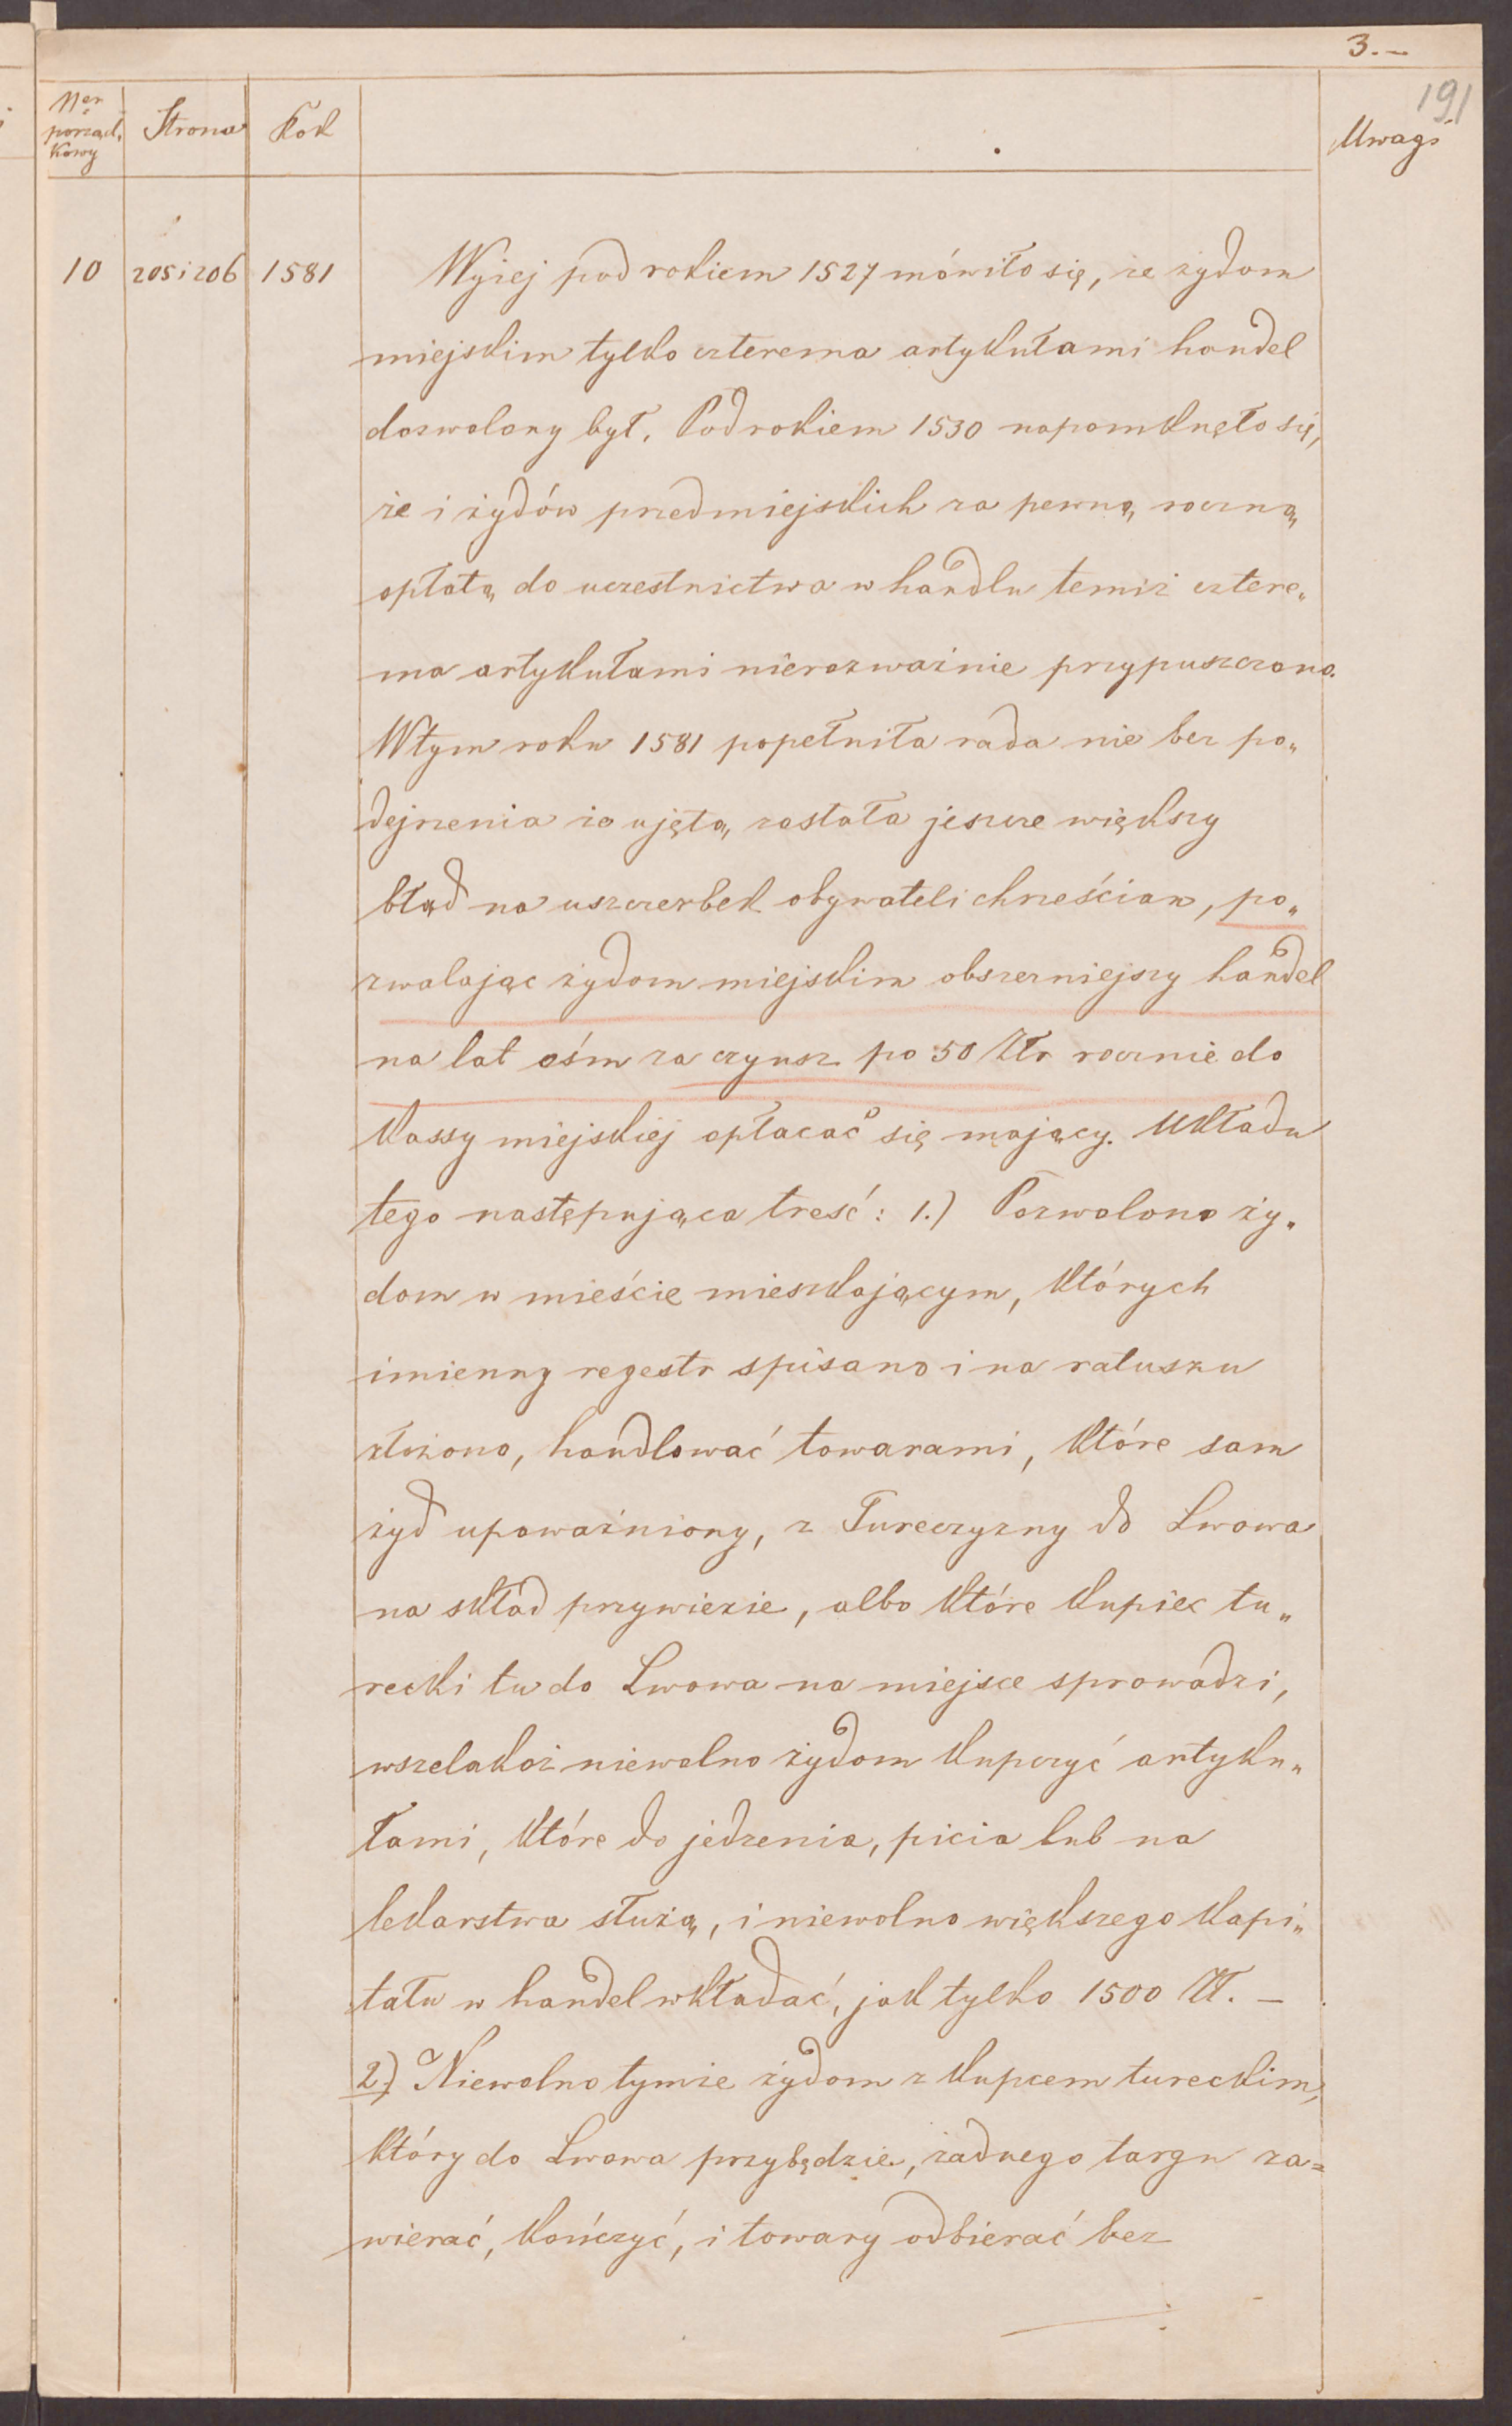 3.-
191
Ner porząd. kowy Strona Rok Uwagi
10 205 i 206 1581 Wyżej pod rokiem 1527 mówiło się, że żydom
miejskim tylko czterema artykułami handel
dozwolony był. Pod rokiem 1530 napomknęło się,
że i żydów przedmiejskich za pewną roczną
opłatą do uczestnictwa w handlu temiż cztere„
ma artykułami nierozważnie przypuszczono.
W tym roku 1581 popełniła rada nie bez po„
dejrzenia że ujętą została jeszcze większy
błąd na uszczerbek obywateli chrześcian, po„
zwalając żydom miejskim obszerniejszy handel
na lat ośm za czynsz po 50 Złr rocznie do
kassy miejskiej opłacać się mający. Układu
tego następująca treść: 1.) Pozwolono ży„
dom w mieście mieszkającym, których
imienny regestr spisano i na ratuszu
złożono, handlować towarami, które sam
żyd upoważniony, z Tureczyzny do Lwowa
na skład przywiezie, albo które kupiec tu„
recki tu do Lwowa na miejsce sprowadzi,
wszelakoż niewolno żydom kupczyć artyku„
łami, które do jedzenia, picia lub na
lekarstwa służą, i niewolno większego kapi„
tału w handel wkładać, jak tylko 1500 Zł. –
2.) Niewolno tymże żydom z kupcem tureckim,
który do Lwowa przybędzie, żadnego targu za=
wierać, kończyć, i towary odbierać bez